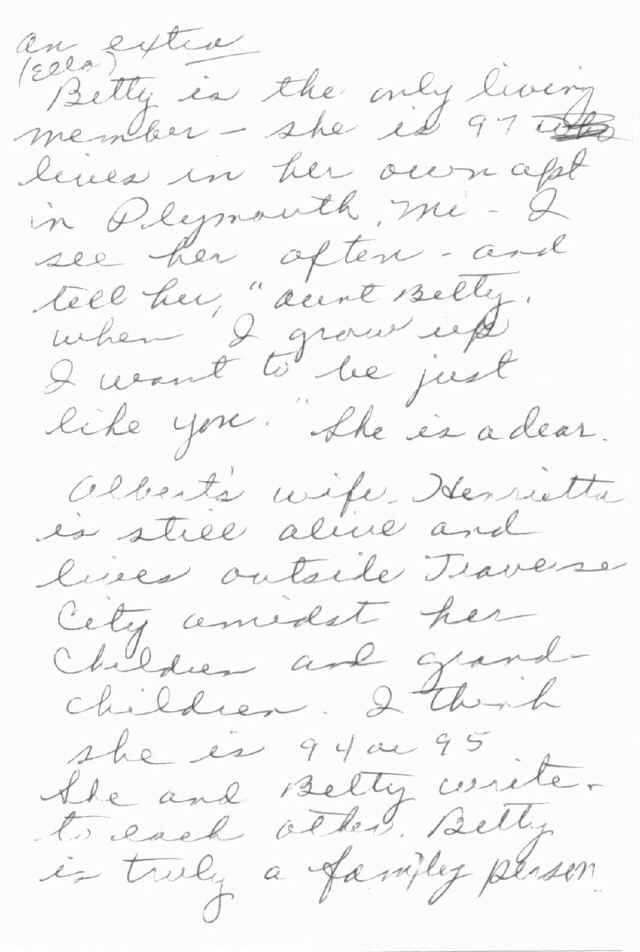 An extra
(Ella)
Betty is the only living
member - she is 97
lives in her own apt
in Plymouth, Mi - I
see her often - and
tell her, "Aunt Betty,
when I grow up
I want to be just
like you." She is a dear.
Albert's wife - Henrietta
is still alive and
lives outside Traverse
City amidst her
children and grand-
children. I think
she is 94 or 95
She and Betty write
to each other. Betty
is truly a family person.